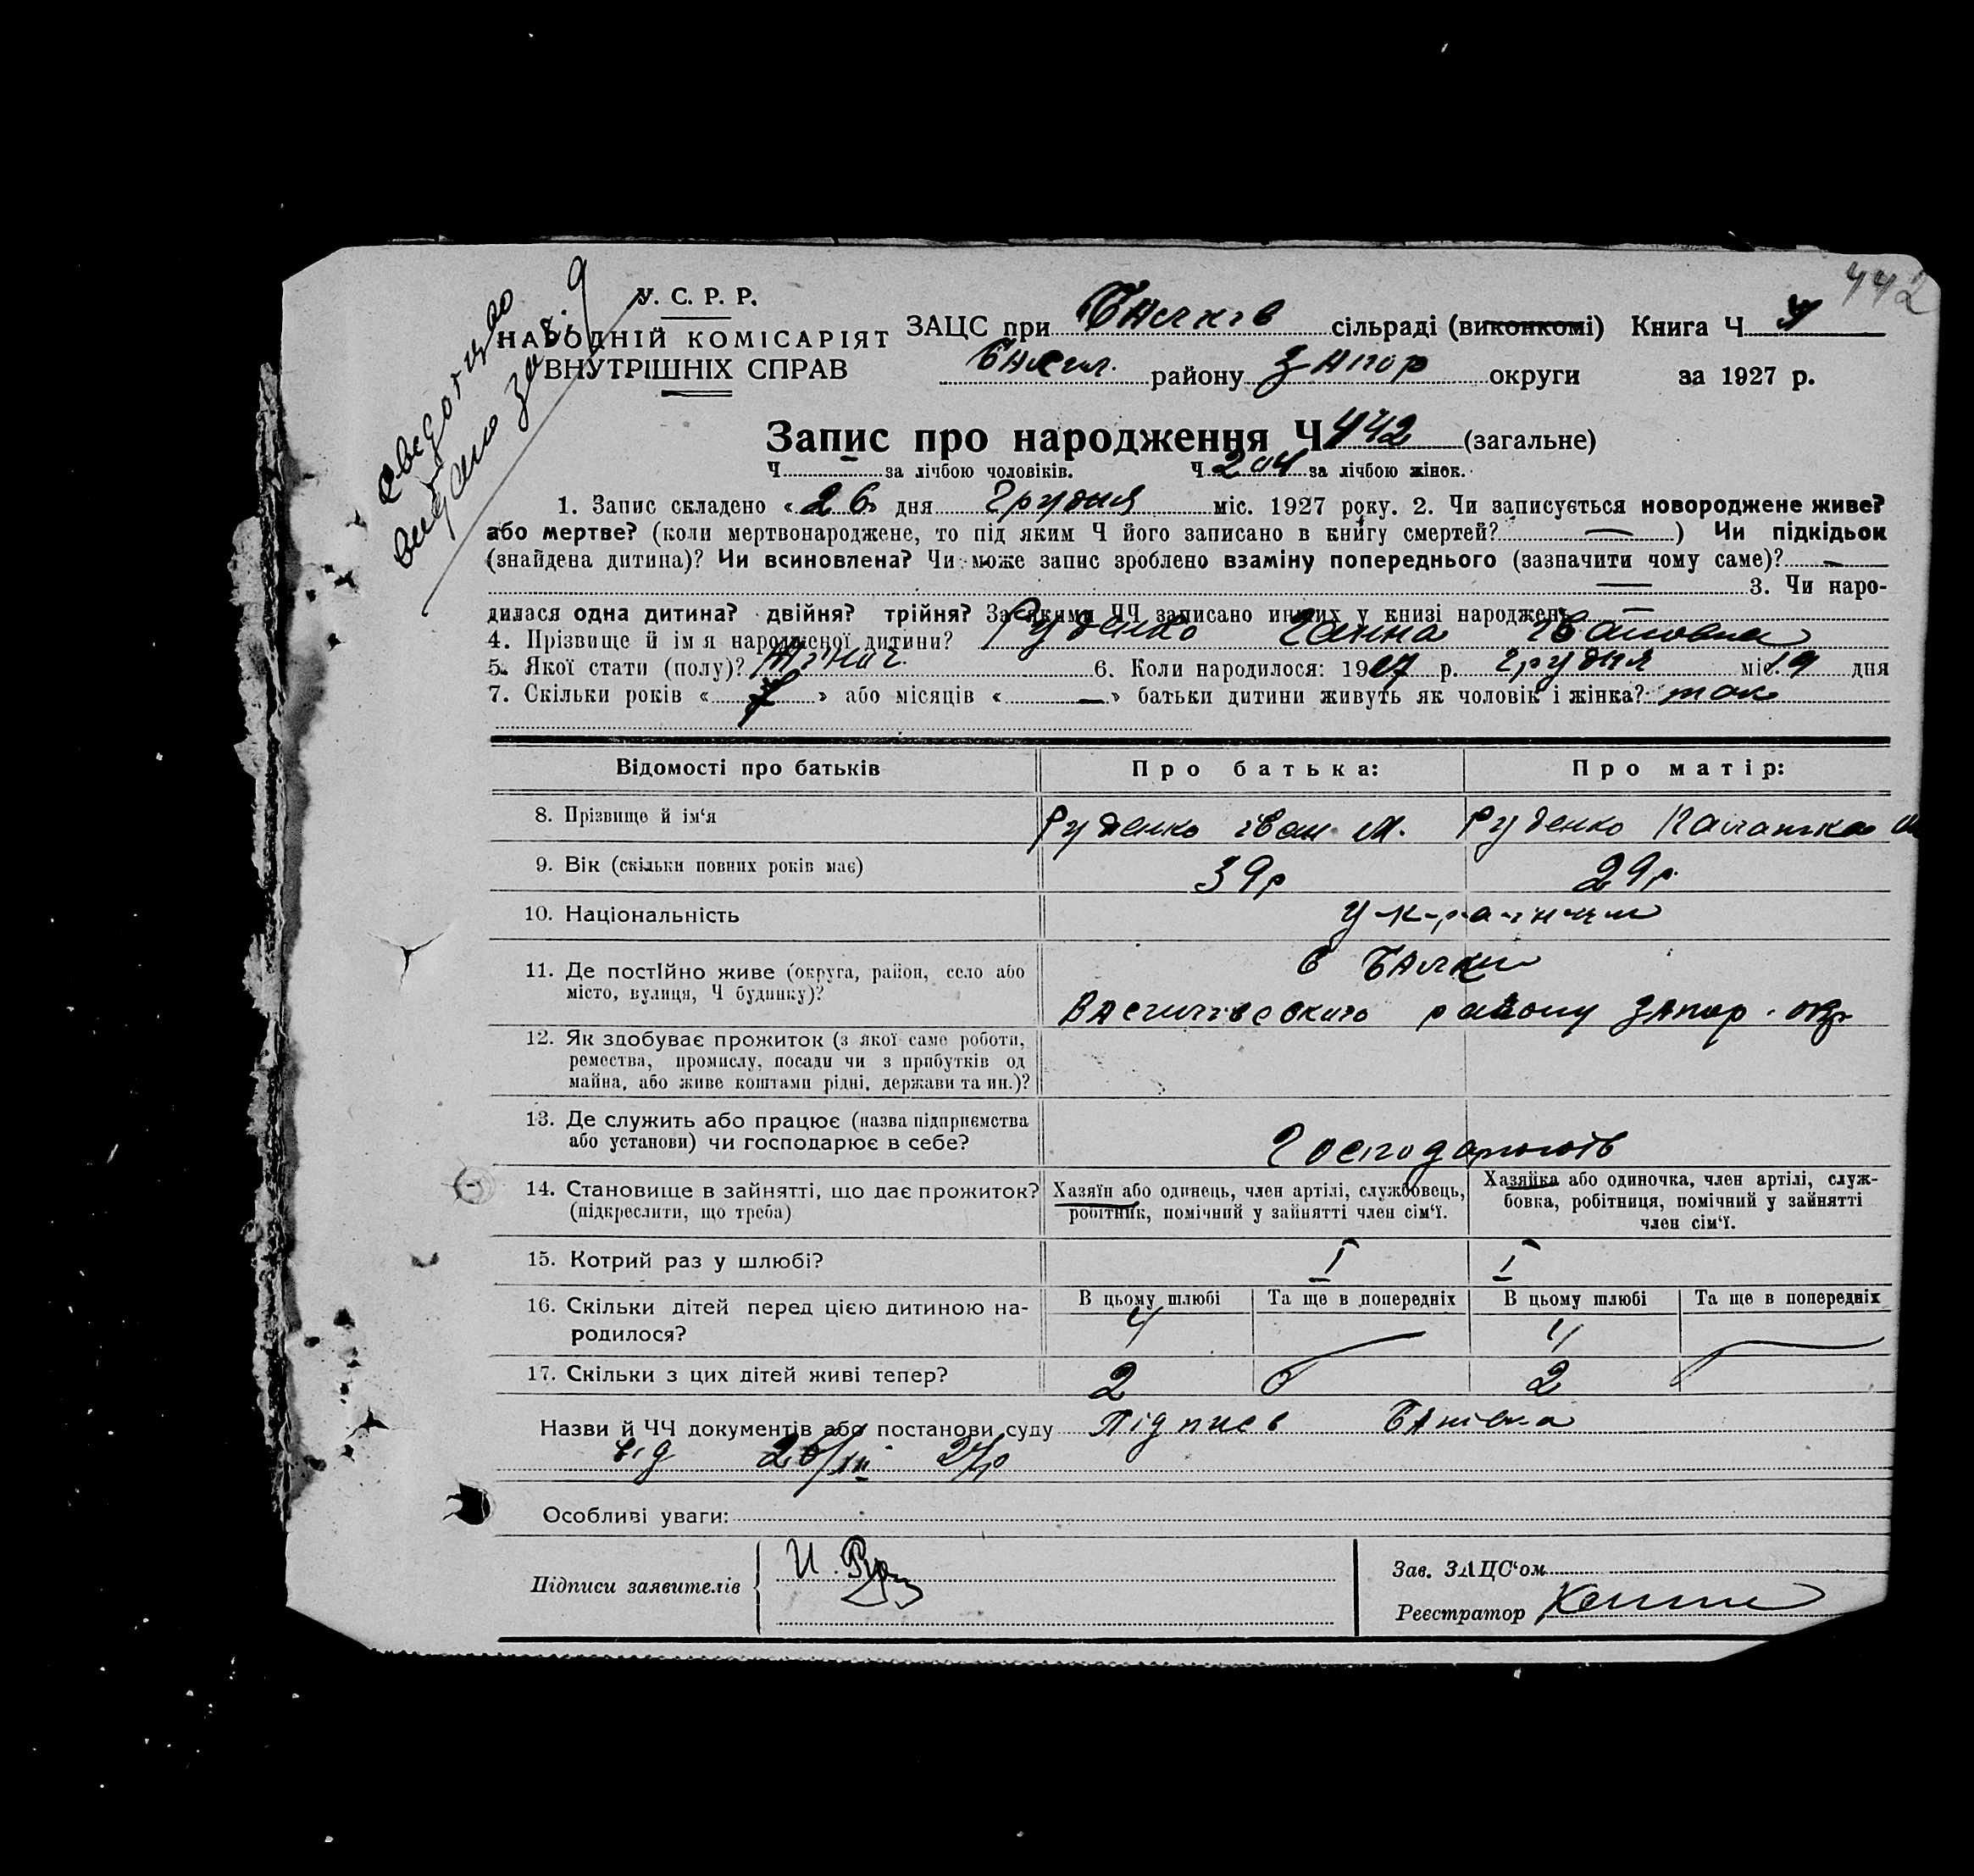 442
У. С. Р. Р.
НАРОДНІЙ КОМІСАРІЯТ
ВНУТРІШНІХ СПРАВ
видано за
ЗАЦС при Балків сільраді (виконкомі) Книга Ч
Васил. району Запор округи за 1927 р.
Запис про народження Ч 442 (загальне)
Ч - за лічбою чоловіків. Ч 204 за лічбою жінок.
1. Запис складено «26» дня Грудня міс. 1927 року. 2. Чи записується новороджене живе?
або мертве? (коли мертвонароджене, то під яким Ч його записано в книгу смертей? — ) Чи підкідьок
(знайдена дитина)? Чи всиновлена? Чи може запис зроблено взаміну попереднього (зазначити чому саме)? —
— 3. Чи наро-
дилася одна дитина? двійня? трійня? За якими ЧЧ записано инших у книзі народжень —
4. Прізвище й ім я народженої дитини? Руденко Ганна Івановна
5. Якої стати (полу)? Жіноч. 6. Коли народилося: 1927 р. Грудня міс. 19 дня
7. Скільки років « 7 » або місяців « — » батьки дитини живуть як чоловік і жінка? так
Відомості про батьків Про батька: Про матір:
8. Прізвище й ім‘я Руденко Іван М. Руденко Палажка
9. Вік (скільки повних років має) 39р 29р.
10. Національність Українци
11. Де постійно живе (округа, район, село або
місто, вулиця, Ч будинку)?
с Балки
Василівського району Запор. окр
12. Як здобуває прожиток (з якої саме роботи,
ремества, промислу, посади чи з прибутків од
майна, або живе коштами рідні, держави та ин.)?
13. Де служить або працює (назва підприємства
або установи) чи господарює в себе?
Господарюють
14. Становище в зайнятті, що дає прожиток?
(підкреслити, що треба)
Хазяїн або одинець, член артілі, службовець,
робітник, помічний у зайнятті член сім‘ї.
Хазяйка або одиночка, член артілі, служ-
бовка, робітниця, помічний у зайнятті
член сім‘ї.
15. Котрий раз у шлюбі? I I
16. Скільки дітей перед цією дитиною на-
родилося?
В цьому шлюбі Та ще в попередніх В цьому шлюбі Та ще в попередніх
4 4
17. Скільки з цих дітей живі тепер? 2 2
Назви й ЧЧ документів або постанови суду Підпись Батька
від 26/XII 27р
Особливі уваги:
Підписи заявителів И. Руд
Зав. ЗАЦС‘ом
Реєстратор